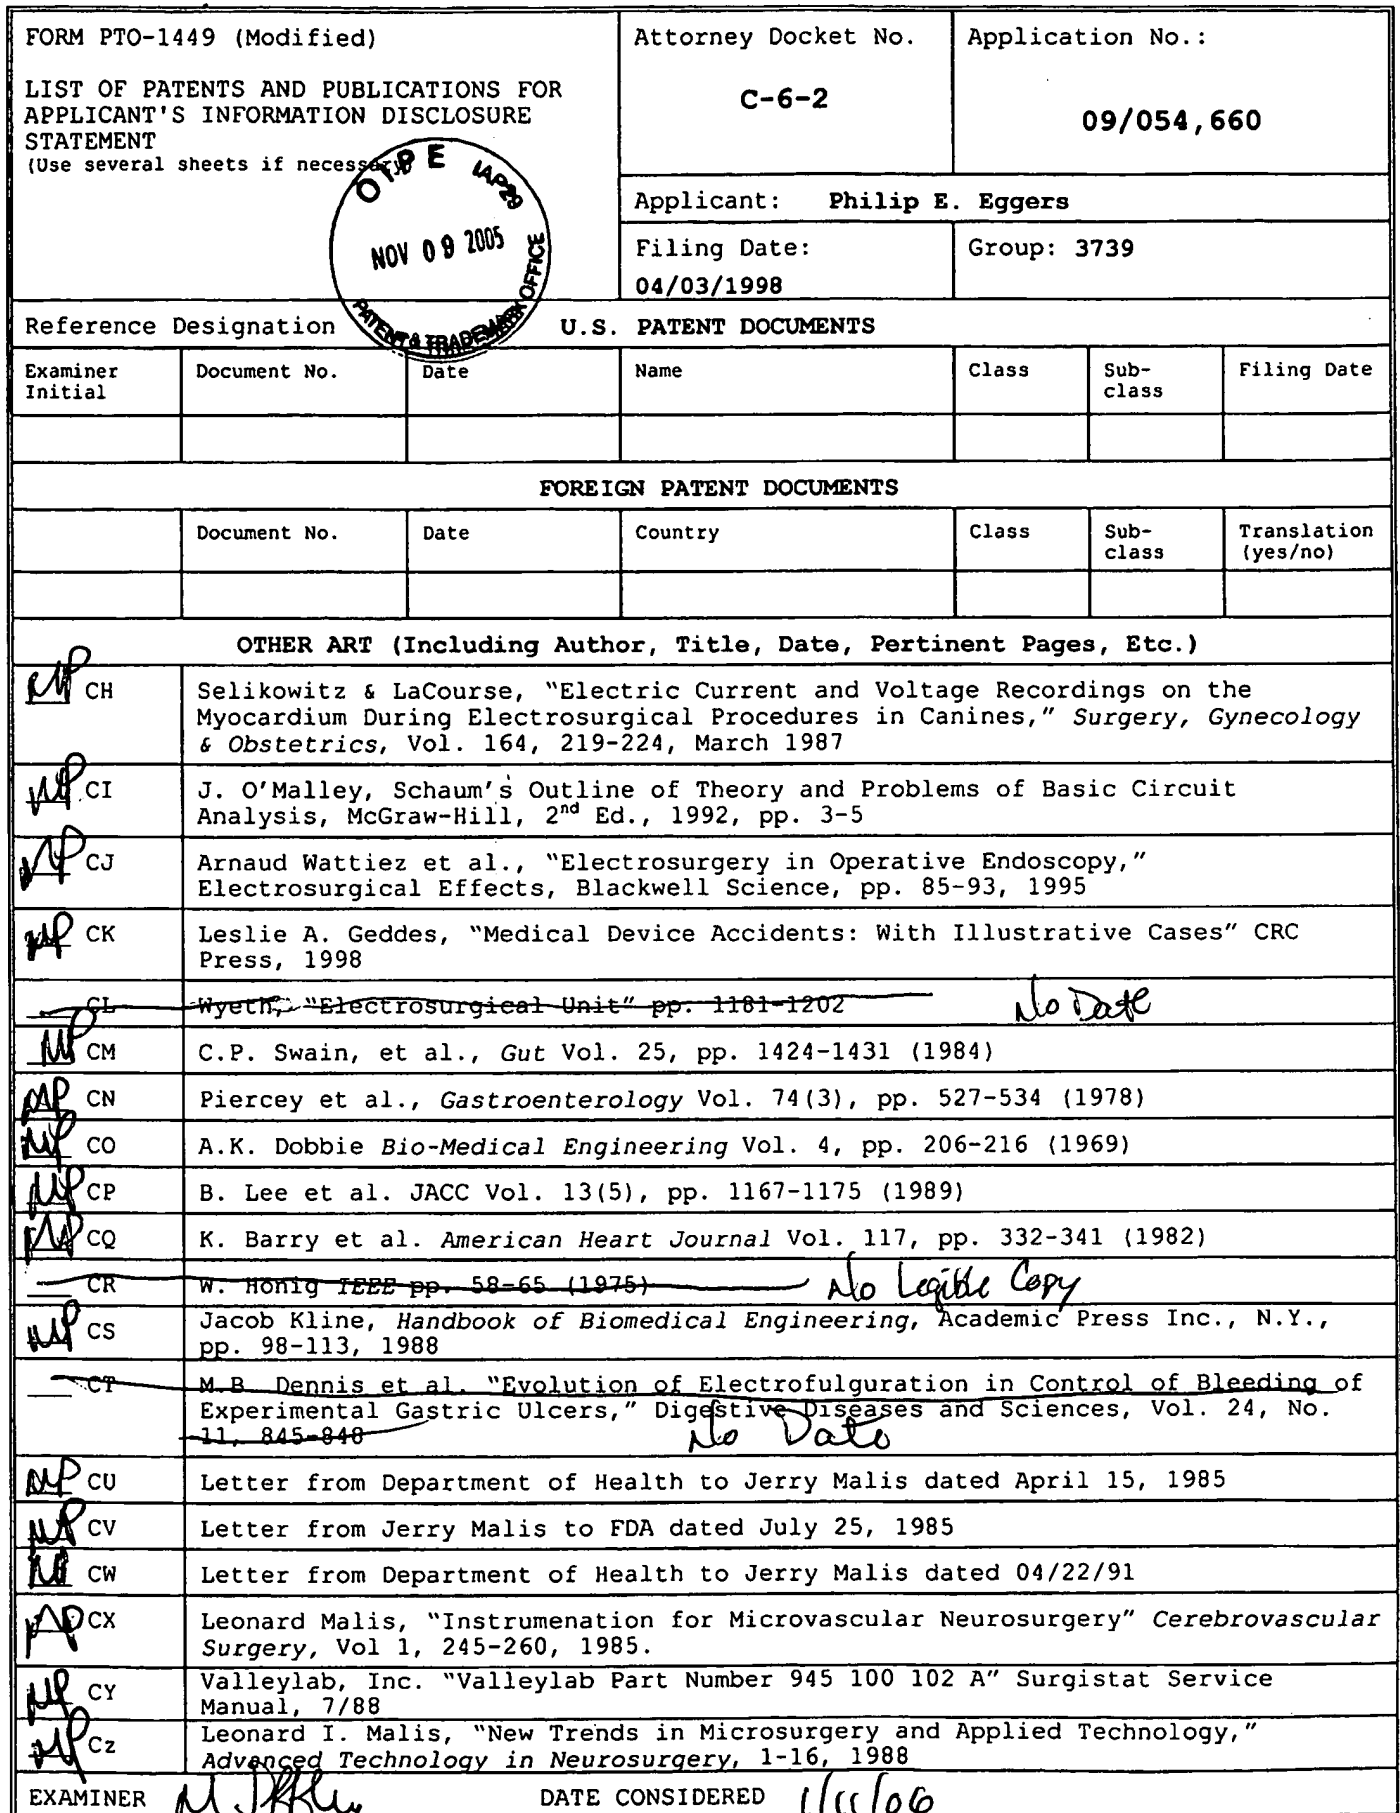 FORM PTO-1449 (Modified)
Attorney Docket No.
Application No.:
LIST OF PATENTS AND PUBLICATIONS FOR
APPLICANT'S INFORMATION DISCLOSURE
STATEMENT
(Use several sheets if necessary)
C-6-2
09/054,660
OIPE IAP29
NOV 09 2005
PATENT & TRADEMARK OFFICE
Applicant: Philip E. Eggers
Filing Date:
04/03/1998
Group: 3739
Reference Designation U.S. PATENT DOCUMENTS
Examiner
Initial
Document No.
Date
Name
Class
Sub-
class
Filing Date
FOREIGN PATENT DOCUMENTS
Document No.
Date
Country
Class
Sub-
class
Translation
(yes/no)
OTHER ART (Including Author, Title, Date, Pertinent Pages, Etc.)
MP CH Selikowitz & LaCourse, "Electric Current and Voltage Recordings on the
Myocardium During Electrosurgical Procedures in Canines," Surgery, Gynecology
& Obstetrics, Vol. 164, 219-224, March 1987
MP CI J. O'Malley, Schaum's Outline of Theory and Problems of Basic Circuit
Analysis, McGraw-Hill, 2nd Ed., 1992, pp. 3-5
MP CJ Arnaud Wattiez et al., "Electrosurgery in Operative Endoscopy,"
Electrosurgical Effects, Blackwell Science, pp. 85-93, 1995
MP CK Leslie A. Geddes, "Medical Device Accidents: With Illustrative Cases" CRC
Press, 1998
CL Wyeth, "Electrosurgical Unit" pp. 1181-1202 No Date
MP CM C.P. Swain, et al., Gut Vol. 25, pp. 1424-1431 (1984)
MP CN Piercey et al., Gastroenterology Vol. 74(3), pp. 527-534 (1978)
MP CO A.K. Dobbie Bio-Medical Engineering Vol. 4, pp. 206-216 (1969)
MP CP B. Lee et al. JACC Vol. 13(5), pp. 1167-1175 (1989)
MP CQ K. Barry et al. American Heart Journal Vol. 117, pp. 332-341 (1982)
CR W. Honig IEEE pp. 58-65 (1975) No Legible Copy
MP CS Jacob Kline, Handbook of Biomedical Engineering, Academic Press Inc., N.Y.,
pp. 98-113, 1988
CT M.B. Dennis et al. "Evolution of Electrofulguration in Control of Bleeding of
Experimental Gastric Ulcers," Digestive Diseases and Sciences, Vol. 24, No.
11, 845-848 No Date
MP CU Letter from Department of Health to Jerry Malis dated April 15, 1985
MP CV Letter from Jerry Malis to FDA dated July 25, 1985
MP CW Letter from Department of Health to Jerry Malis dated 04/22/91
MP CX Leonard Malis, "Instrumenation for Microvascular Neurosurgery" Cerebrovascular
Surgery, Vol 1, 245-260, 1985.
MP CY Valleylab, Inc. "Valleylab Part Number 945 100 102 A" Surgistat Service
Manual, 7/88
MP Cz Leonard I. Malis, "New Trends in Microsurgery and Applied Technology,"
Advanced Technology in Neurosurgery, 1-16, 1988
EXAMINER DATE CONSIDERED 1/11/06